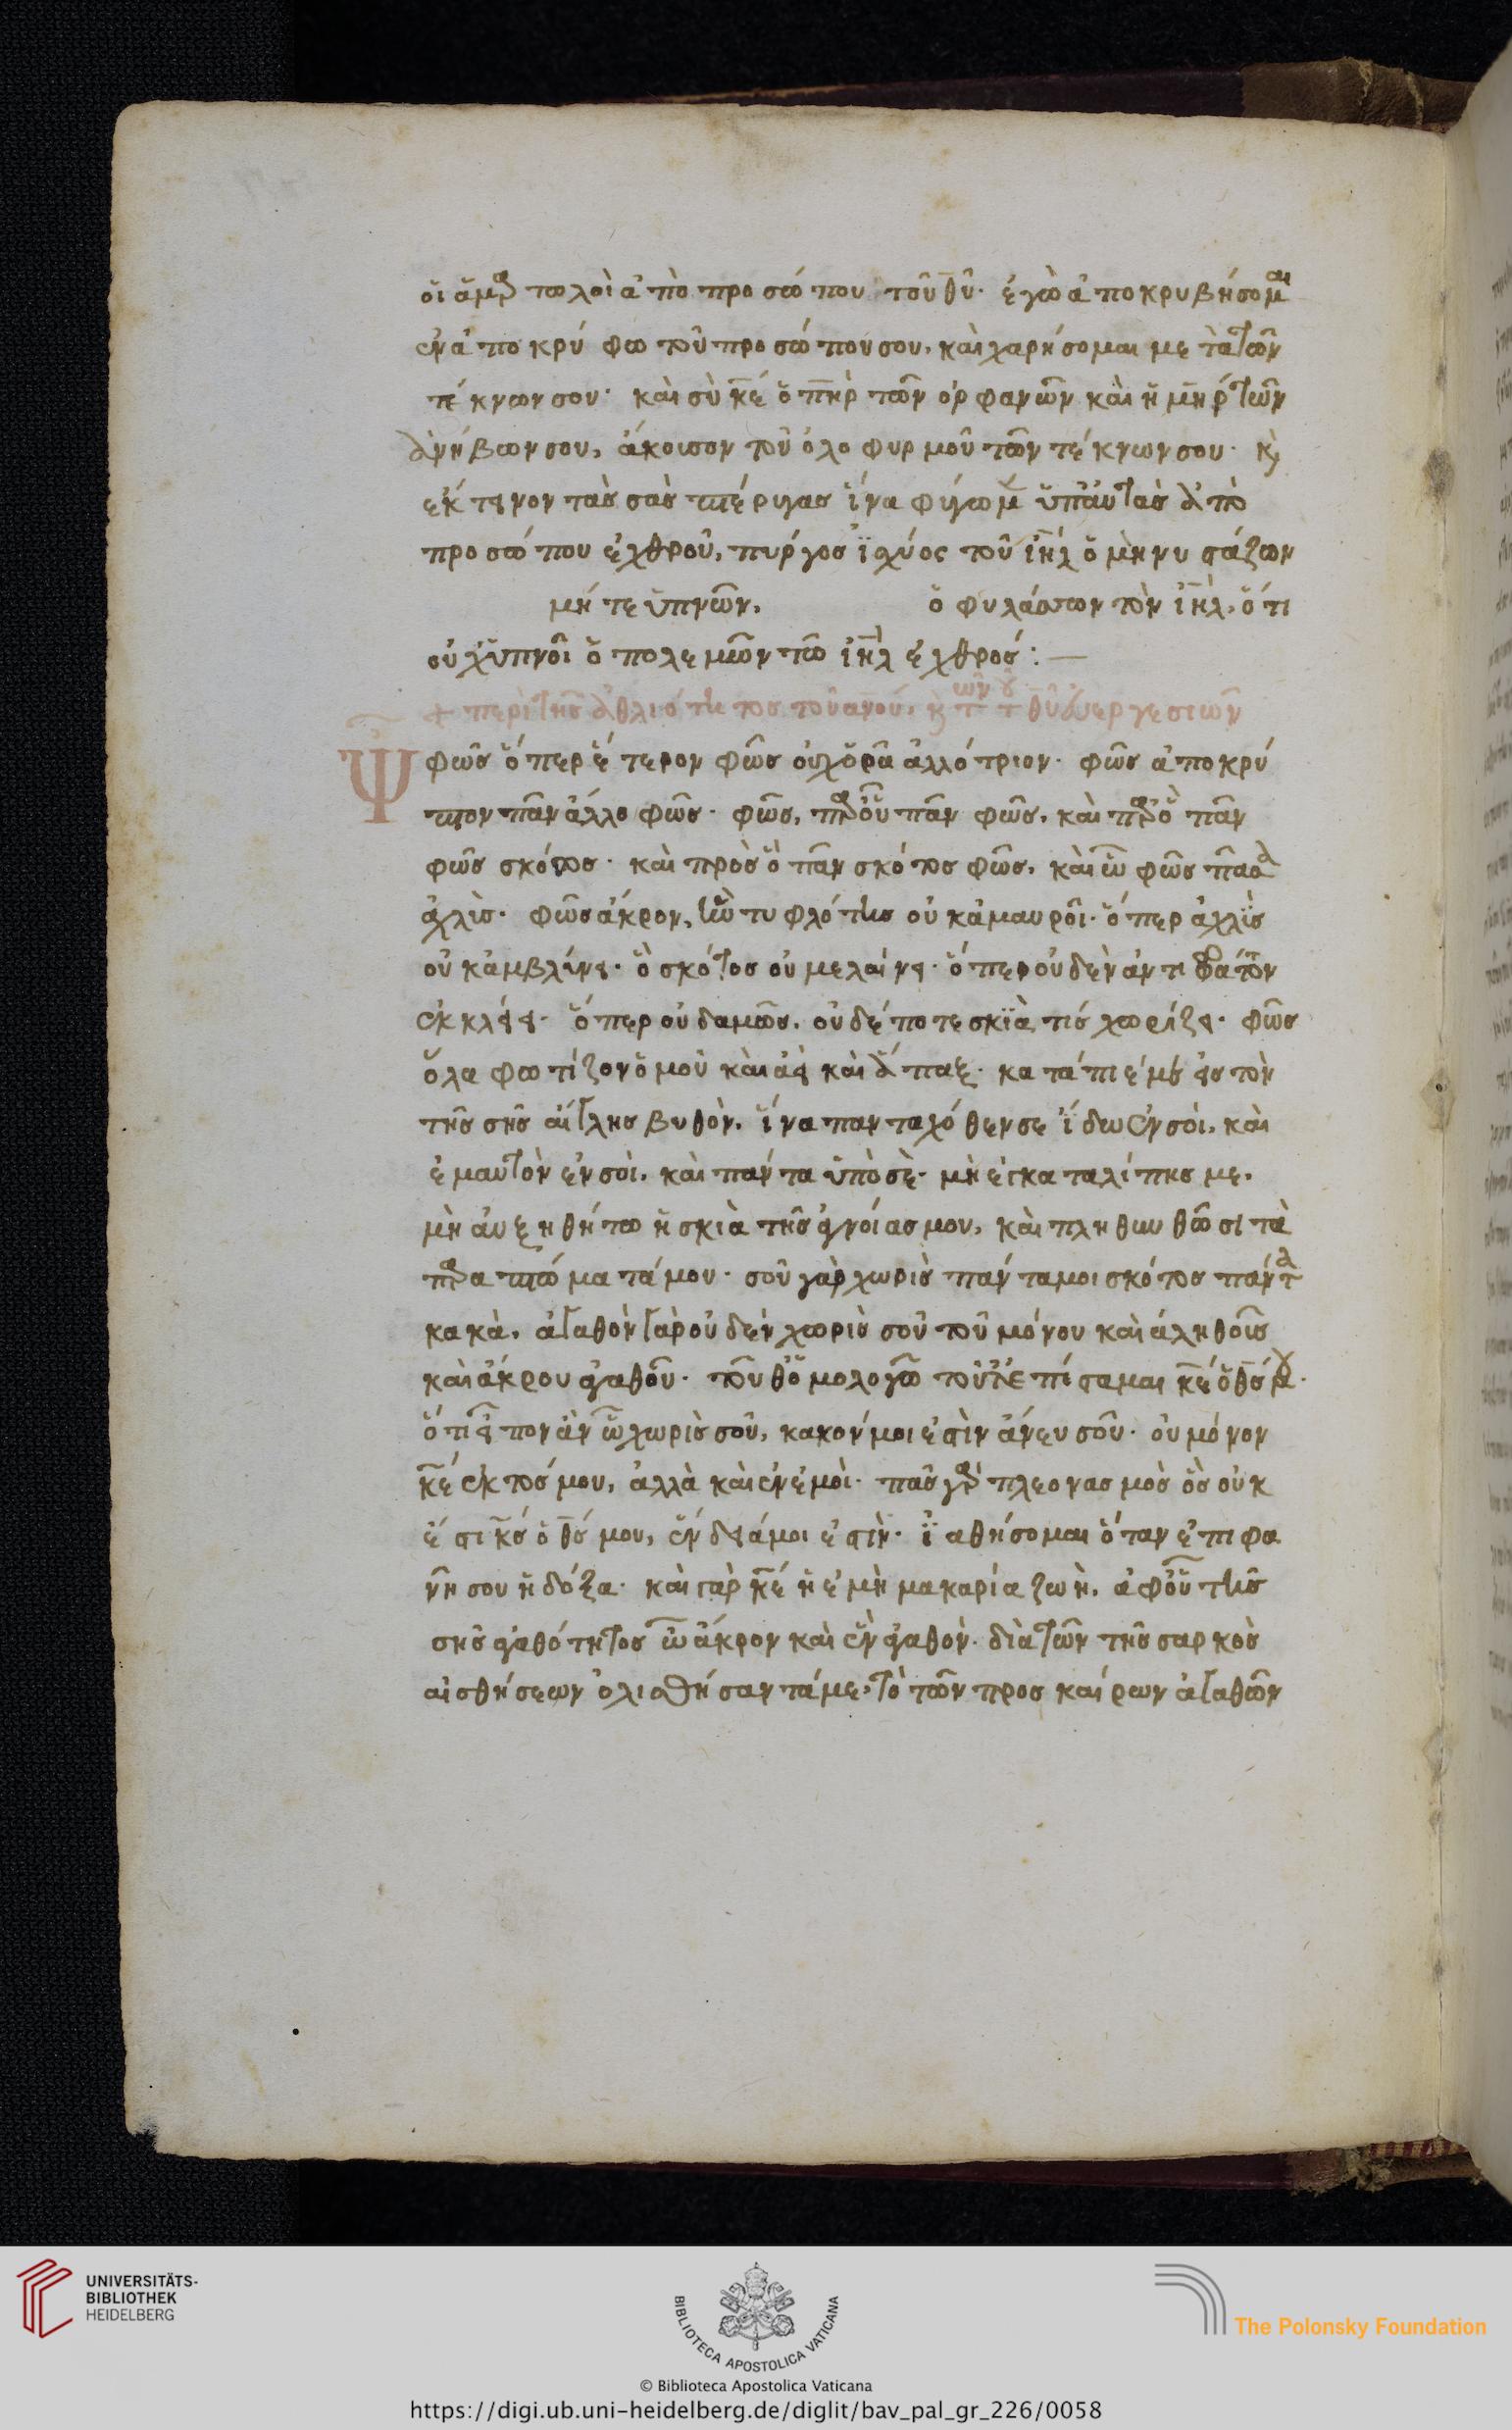 οἱ ἁμαρτωλοὶ ἀπὸ προσώπου τοῦ θῦ· ἐγὼ ἀποκρυβήσομαι
ἐν ἀποκρύφω τοῦ προσώπου σου, καὶ χαρήσομαι μετὰ τῶν
τέκνων σου· καὶ σὺ κ̅ε̅ ὁ π̅η̅ρ τῶν ὀρφανῶν καὶ ἡ μ̅η̅ρ τῶν
ἀνήβων σου, ἄκουσον τοῦ ὀλοφυρμοῦ τῶν τέκνων σου· κ̀
ἔκτεινον τὰς σὰς πτέρυγας ἵνα φύγωμεν ὑπ' αὐτὰς ἀπὸ
προσώπου ἐχθροῦ, πύργος ἰχύος τοῦ ἰη̅λ ὁ μὴ νυστάζων
μήτε ὑπνῶν, ὁ φυλάσσων τὸν ἰη̅λ, ὅτι
οὐχ ὑπνοῖ ὁ πολεμῶν τῶ ἰη̅λ ἐχθρός :—
+ περὶ τῆς ἀθλιότητος τοῦ ἀνου, κ̀ τῶν τοῦ θῦ εὐεργεσιῶν
Φῶς ὅπερ ἕτερον φῶς οὐχ ὁρᾶ ἀλλότριον· φῶς ἀποκρύ
πτον πᾶν ἄλλο φῶς· φῶς, παρ' οὗ πᾶν φῶς, καὶ παρ' ὃ πᾶν
φῶς σκότος· καὶ πρὸς ὃ πᾶν σκότος φῶς, καὶ ὦ φῶς πᾶσα
ἀχλὺς· φῶς ἄκρον, ὃ τυφλότης οὐκ ἀμαυροῖ· ὅπερ ἀχλὺς
οὐκ ἀμβλύνει· ὃ σκότος οὐ μελαίνει· ὅπερ οὐδὲν ἀντιβατὸν
ἐκκλείει· ὅπερ οὐδαμῶς, οὐδέποτε σκϊὰ τὶς χωρίζει· φῶς
ὅλα φωτίζον ὁμοῦ καὶ ἀεὶ καὶ ἅπαξ· κατάπιέ με εἰς τὸν
τῆς σῆς αἴγλης βυθὸν, ἵνα πανταχόθεν σε ἴδω ἐν σοὶ, καὶ
ἐμαυτὸν ἐν σοὶ, καὶ πάντα ὑπὸ σὲ· μὴ ἐγκαταλίπης με,
μὴ αὐξηθήτω ἡ σκιὰ τῆς ἀγνοίας μου, καὶ πληθυνθῶσι τὰ
παραπτώματά μου· σοῦ γὰρ χωρὶς πάντα μοι σκότος πάντα
κακὰ, ἀγαθὸν γὰρ οὐδὲν χωρὶς σοῦ τοῦ μόνου καὶ ἀληθοῦς
καὶ ἄκρου ἀγαθοῦ· τοῦθ' ὁμολογῶ τοῦτ' ἐπίσταμαι κ̅ε̅ ὁ θ̅ς̅ μου·
ὅτι εἴπου ἂν ὦ χωρὶς σοῦ, κακόν μοι ἐστὶν ἄνευ σοῦ· οὐ μόνον
κ̅ε̅ ἐκτός μου, ἀλλὰ καὶ ἐν ἐμοὶ· πᾶς γὰρ πλεονασμὸς ὃς οὐκ
ἔστι κ̅ς̅ ὁ θ̅ς̅ μου, ἔνδειά μοι ἐστὶν· ἰαθήσομαι ὅταν ἐπιφα
νῆ σου ἡ δόξα· καὶ γὰρ κ̅ε̅ ἡ ἐμὴ μακαρία ζωὴ, ἀφ' οὗ τῆς
σῆς ἀγαθότητος ὦ ἄκρον καὶ ἓν ἀγαθὸν· διὰ τῶν τῆς σαρκὸς
αἰσθήσεων ὀλισθήσαντά με, τὸ τῶν προσκαίρων ἀγαθῶν
UNIVERSITÄTS-
BIBLIOTHEK
HEIDELBERG
BIBLIOTECA APOSTOLICA VATICANA
The Polonsky Foundation
© Biblioteca Apostolica Vaticana
https://digi.ub.uni-heidelberg.de/diglit/bav_pal_gr_226/0058